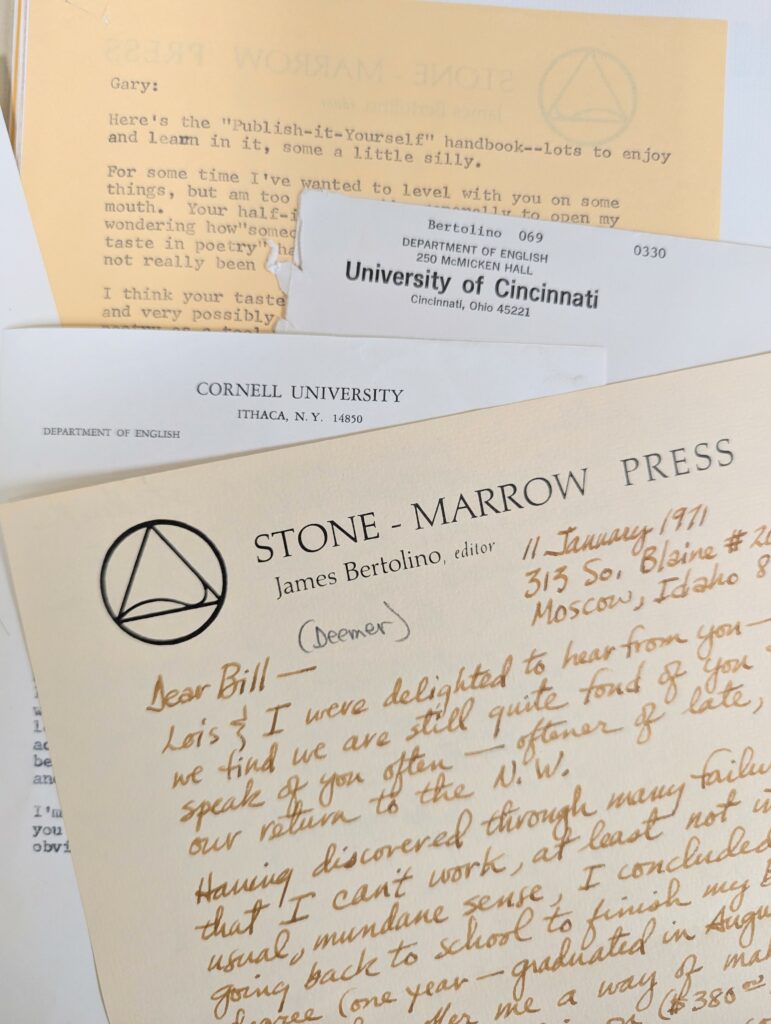 STONE MARROW PRESS
James Bertolino, editor
Gary:
Here's the "Publish-it-Yourself" handbook--lots to enjoy
and learn in it, some a little silly.
For some time I've wanted to level with you on some
things, but am too to open my
mouth. Your half-i
wondering how"someo
taste in poetry" ha
not really been
I think your taste
and very possibly
Bertolino 069
0330
DEPARTMENT OF ENGLISH
250 McMICKEN HALL
University of Cincinnati
Cincinnati, Ohio 45221
CORNELL UNIVERSITY
ITHACA, N. Y. 14850
DEPARTMENT OF ENGLISH
I'm
you
obvi
STONE - MARROW PRESS
James Bertolino, editor
11 January 1971
313 So. Blaine # 20
Moscow, Idaho 8
(Deemer)
Dear Bill —
Lois & I were delighted to hear from you —
we find we are still quite fond of you &
speak of you often — oftener of late,
our return to the N.W.
Having discovered through many failu
that I can't work, at least not in
usual, mundane sense, I concluded
going back to school to finish my B
degree (one year — graduated in Augu
me a way of ma
($380